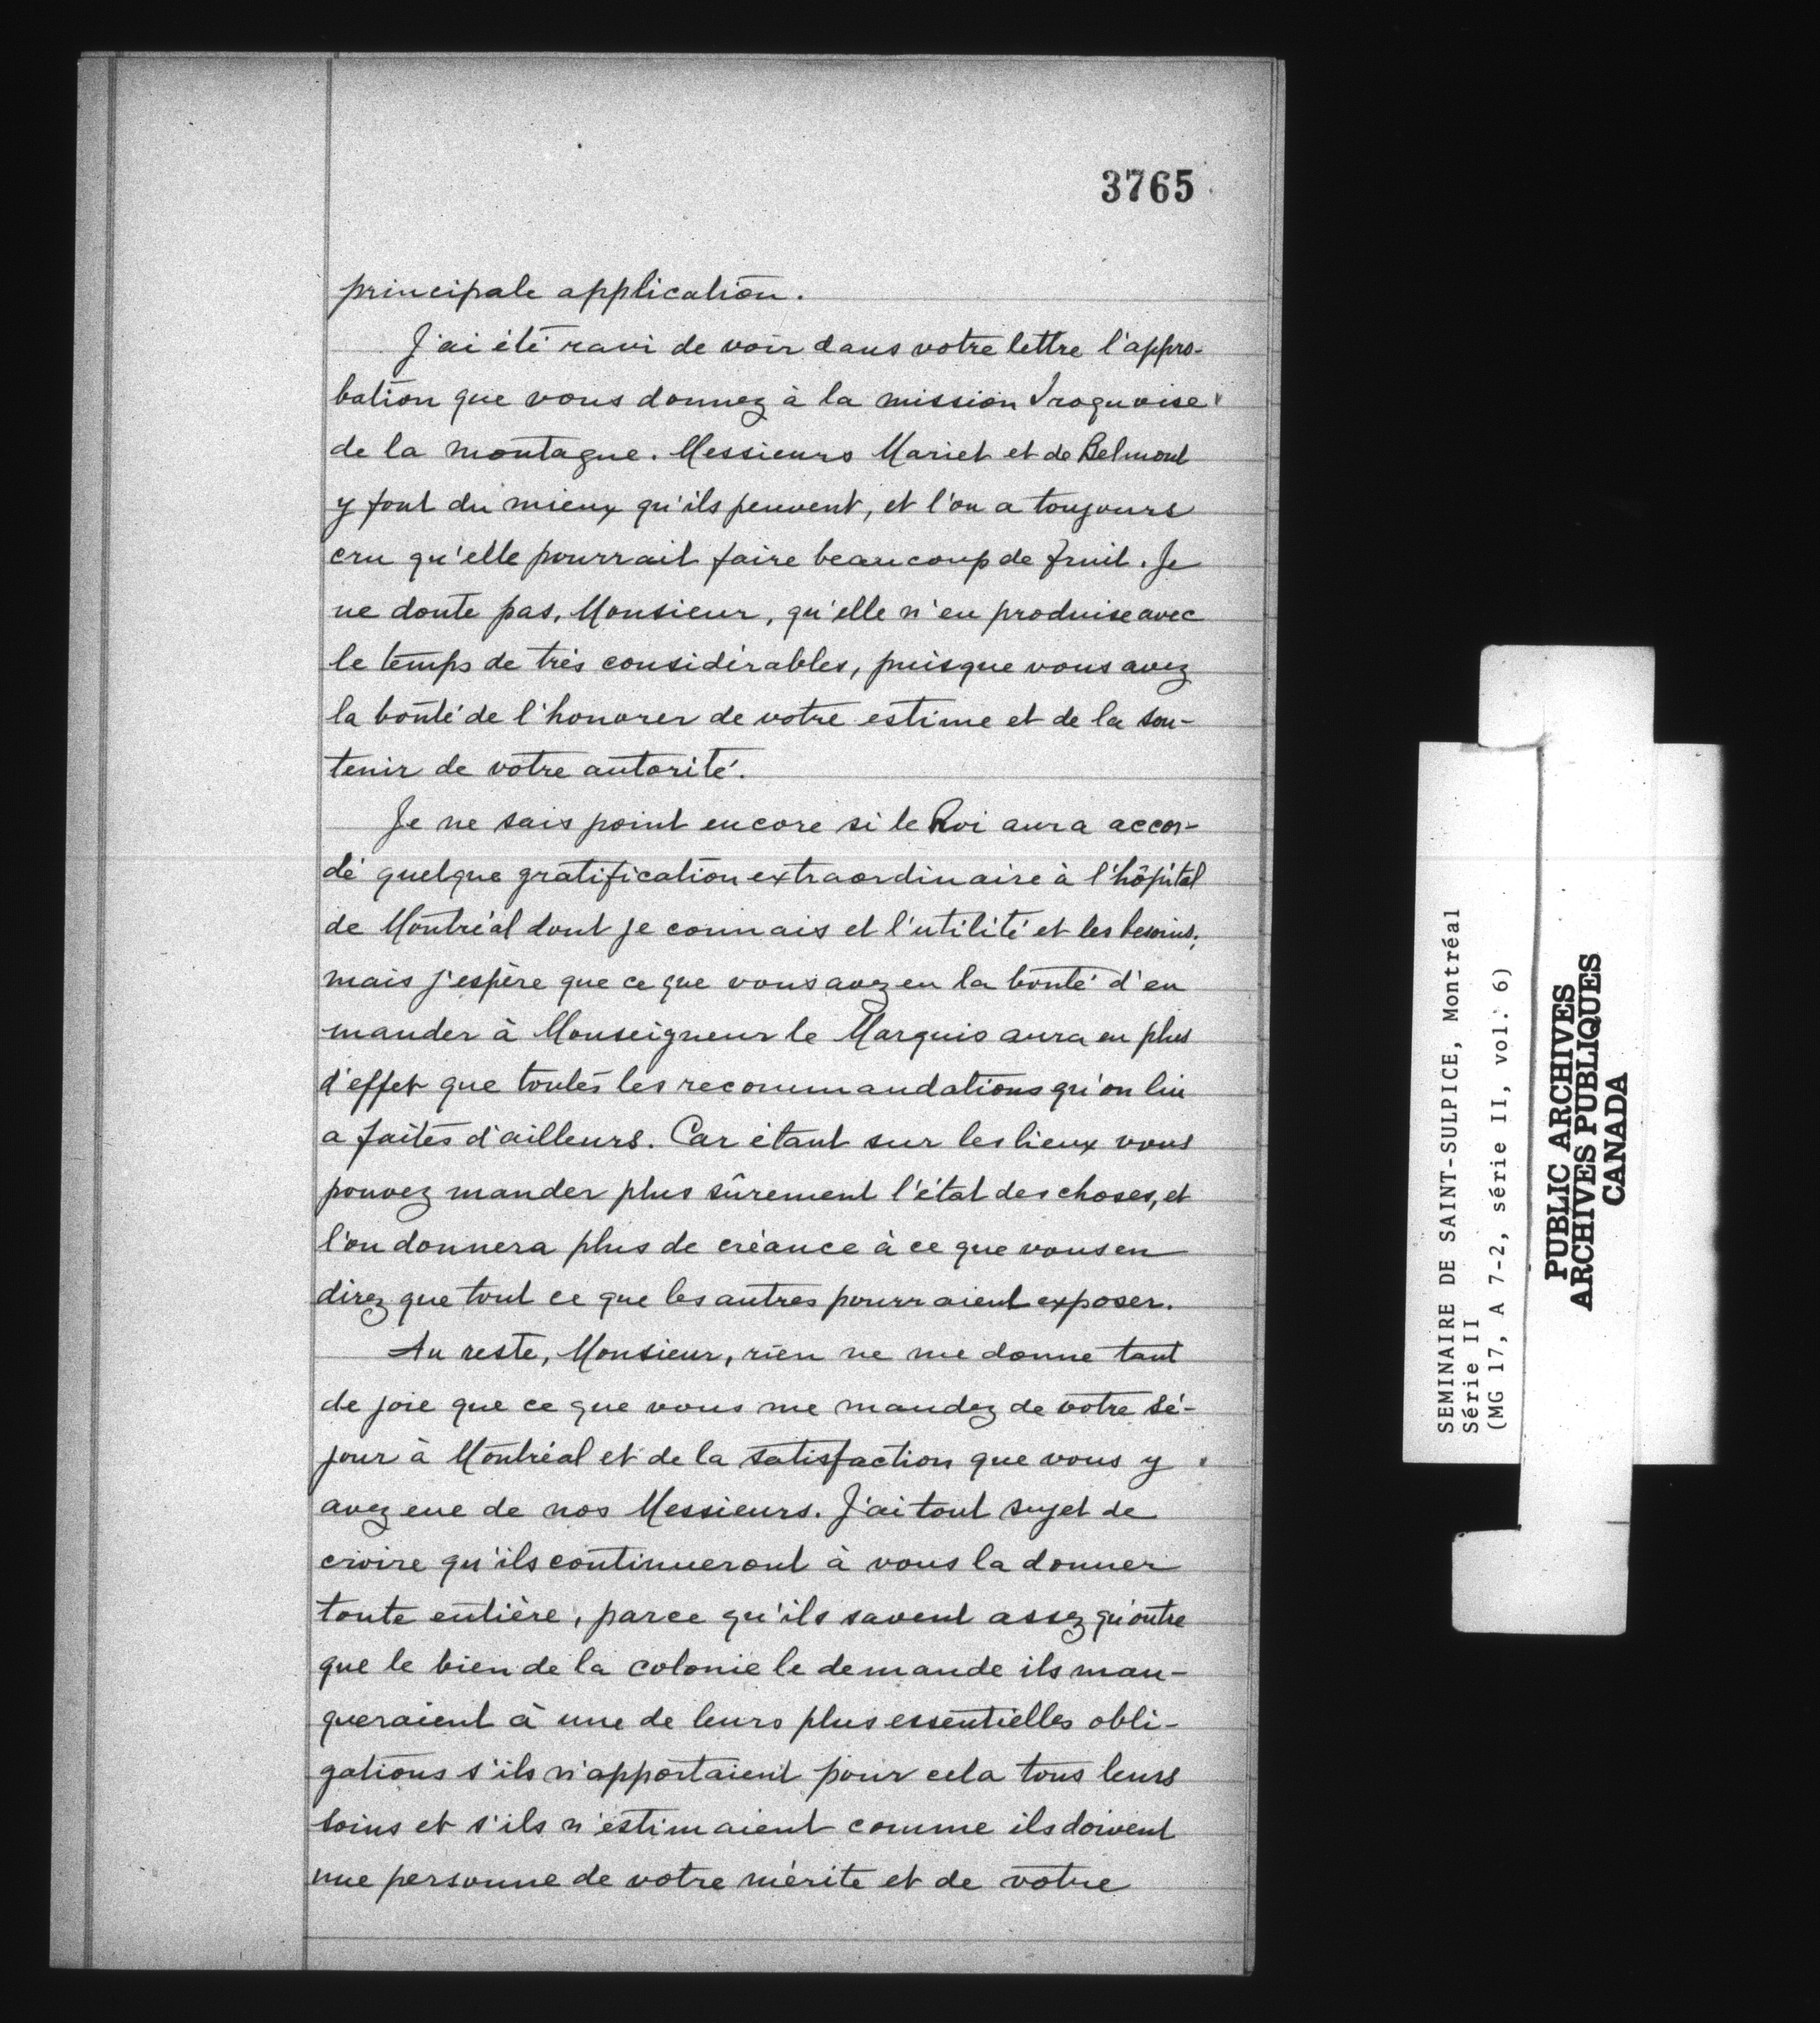 3765
principale application.
J'ai été ravi de voir dans votre lettre l'appro-
bation que vous donnez à la mission Iroquoise
de la montagne. Messieurs Mariet et de Belmont
y font du mieux qu'ils peuvent, et l'on a toujours
cru qu'elle pourrait faire beaucoup de fruit. Je
ne doute pas, Monsieur, qu'elle n'en produise avec
le temps de très considérables, puisque vous avez
la bonté de l'honorer de votre estime et de la sou-
tenir de votre autorité.
Je ne sais point encore si le Roi aura accor-
dé quelque gratification extraordinaire à l'hôpital
de Montréal dont je connais et l'utilité et les besoins;
mais j'espère que ce que vous avez eu la bonté d'en
mander à Monseigneur le Marquis aura eu plus
d'effet que toutes les recommandations qu'on lui
a faites d'ailleurs. Car étant sur les lieux vous
pouvez mander plus sûrement l'état des choses, et
l'on donnera plus de créance à ce que vous en
direz que tout ce que les autres pourraient exposer.
Au reste, Monsieur, rien ne me donne tant
de joie que ce que vous me mandez de votre sé-
jour à Montréal et de la satisfaction que vous y
avez eue de nos Messieurs. J'ai tout sujet de
croire qu'ils continueront à vous la donner
toute entière, parce qu'ils savent assez qu'outre
que le bien de la colonie le demande ils man-
queraient à une de leurs plus essentielles obli-
gations s'ils n'apportaient pour cela tous leurs
soins et s'ils n'estimaient comme ils doivent
une personne de votre mérite et de votre
SEMINAIRE DE SAINT-SULPICE, Montréal
Série II
(MG 17, A 7-2, série II, vol. 6)
PUBLIC ARCHIVES
ARCHIVES PUBLIQUES
CANADA